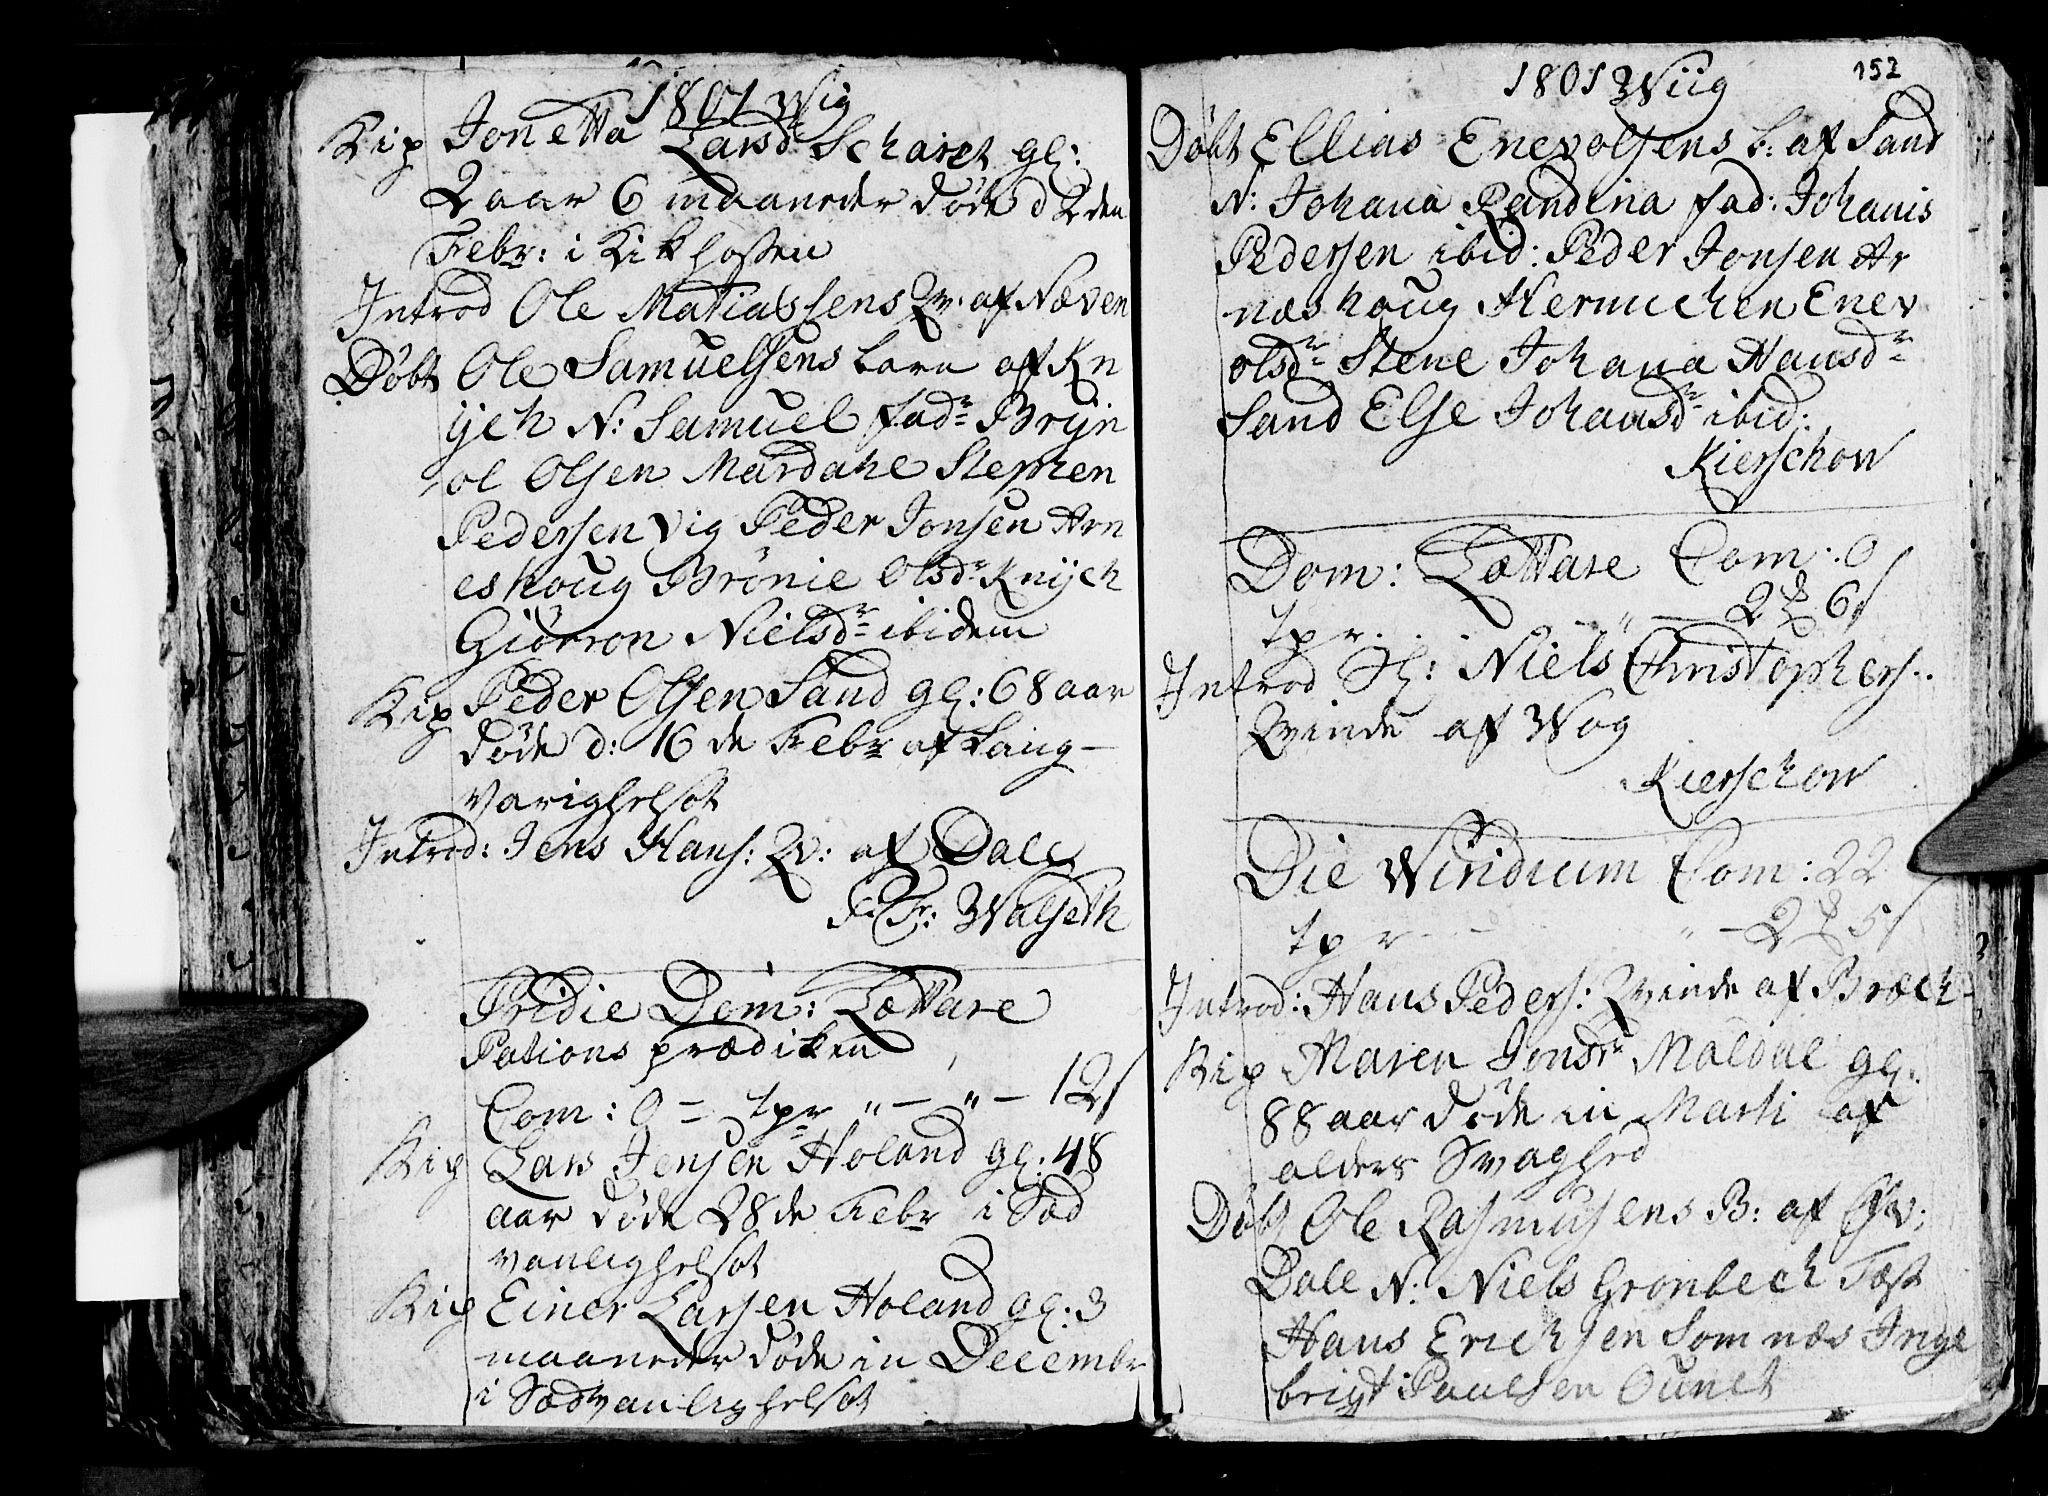 1801 Wig
Rip Jonetta Larsd Scharet gl:
2 aar 6 maaneder døde d 2den
Febr: i Kikhosten
Introd Ole Matiassens Qv: af Næven
Døbt Ole Samuelsens barn af Kn
ÿch N: Samuel fadr Brÿn
ol Olsen Mardahl Stephen
Pedersen Vig Peder Jonsen Arn
eshoug Brønie Olsdr Knÿch
Giørron Nielsdr ibidem
Rip Peder Olsen Sand gl: 68 aar
døde d: 16 de Febr af Lang-
varighelsot
Introd: Jens Hans: Qv: af Dale
F: Fr: Walseth
Pridie Dom: Lættare
Pations prædiken
Com: 0 - tpr " - " - 12 s
Rip Lars Jensen Holand gl: 48
aar døde 28 de Febr i Sæd
vanlighelsot
Rip Einer Larsen Holand gl: 3
maaneder døde in Decembr
i Sædvanlighelsot
152
1801 Wiig
Døbt Ellias Enevolsens b: af Sand
N: Johana Randina fad: Johanis
Pedersen ibid: Peder Jonsen Ar
næshoug Hermichen Enev
olsdr Stene Johana Hansdr
Sand Else Johansdr ibid:
Kierschow
Dom: Lættare Com: 0
tpr. . . " - 2 6 s
Introd Sl: Niels Christophers..
Qvinde af Wog
Kierschow
Die Wiridium Com: 22
tpr - - " - 2 5 s
Introd: Hans Peders: Qvinde af Bræch
Rip Maren Jonsdr Moldal gl:
88 aar døde in Marti af
alders Svaghed
Døbt Ole Rasmusens B: af
Dale N: Niels Grønbech Test
Hans Erichsen Somnæs Inge
brigt Paulsen Ounet